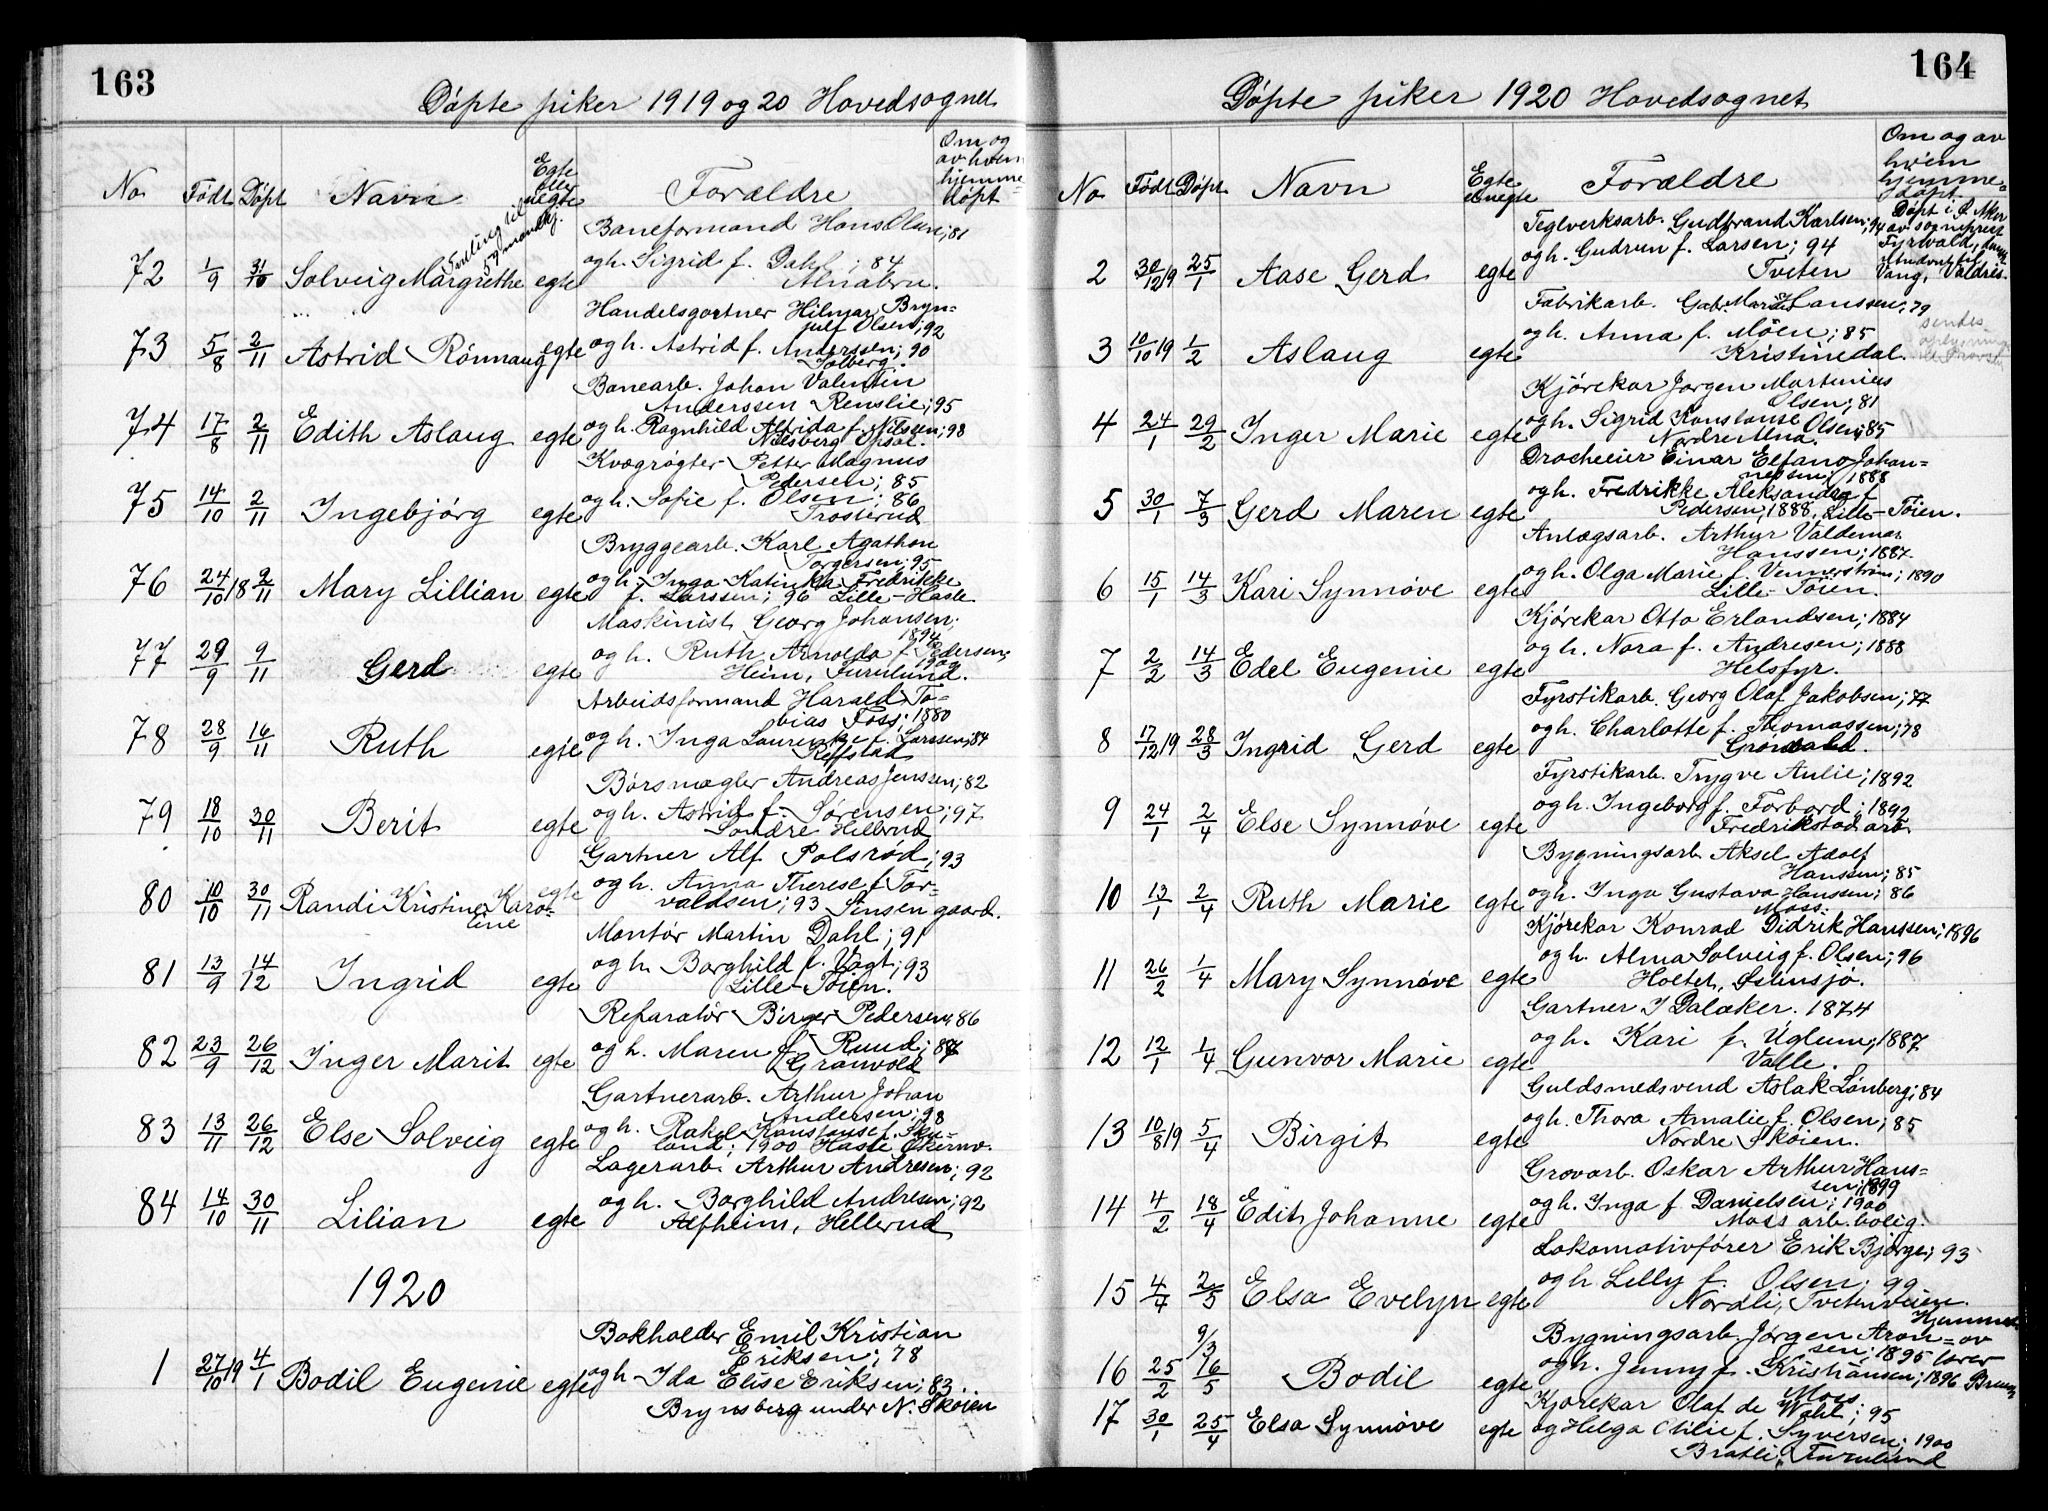 163
Døpte piker 1919 og 20 Hovedsognet
No Født Døpt Navn Egte eller uegte Forældre Om og av hvem hjemmedøpt
72 1/9 31/10 Solveig Margrethe egte Baneformand Hans Olsen; 81
og h. Sigrid f. Dahl; 84
Alnabru.
73 5/8 2/11 Astrid Rönnaug egte Handelsgartner Hilmar Bryn-
julf Olsen; 92
og h. Astrid f. Anderssen; 90
Solberg.
74 17/8 2/11 Edith Aslaug egte Banearb. Johan Valentin
Anderssen Renslie; 95
og h. Ragnhild Alfrida f. Nilssen; 98
Nilsberg Opsal.
75 14/10 2/11 Ingebjórg egte Kvægrøgter Petter Magnus
Pedersen; 85
og h. Sofie f. Olsen; 86
Trosterud
76 24/10 18 9/11 Mary Lillian egte Bryggearb. Karl Agathon
Torgersen; 95
og h. Inga Katinka Fredrikke
f. Larssen; 96 Lille-Hasle.
77 29/9 9/11 Gerd egte Maskinist Georg Johansen;
1894
og h. Ruth Arnolda f. Pedersen;
1900
Heim, Furulund.
78 28/9 16/11 Ruth egte Arbeidsformand Harald To-
bias Foss; 1880
og h. Inga Laurentze f. Larssen; 84
Refstad
79 18/10 30/11 Berit egte Børsmægler Andreas Jenssen; 82
og h. Astrid f. Sørensen; 97
Søndre Hellerud
80 10/10 30/11 Randi Kristine Karo-
line egte Gartner Alf Polsrød; 93
og h. Anna Therese f. Tor-
valdsen; 93 Sinsen gaard.
81 13/9 14/12 Ingrid egte Montør Martin Dahl; 91
og h. Borghild f. Vogt; 93
Lille-Töien.
82 23/9 26/12 Inger Marit egte Reparatör Birger Pedersen; 86
og h. Maren f. Ruud; 87
Granvold
83 13/11 26/12 Else Solveig egte Gartnerarb. Arthur Johan
Andersen; 98
og h. Rakel Konstanse f.
land; 1900 Hasle Økernv.
84 14/10 30/11 Lilian egte Lagerarb. Arthur Andresen; 92
og h. Borghild Andresen; 92
Alfheim, Hellerud
1920
1 27/10 19 4/1 Bodil Eugenie egte Bokholder Emil Kristian
Eriksen; 78
og h. Ida Elise Eriksen; 83
Brynsberg under N. Skøien
164
Døpte piker 1920 Hovedsognet
No Født Døpt Navn Egte eller uegte Forældre Om og av hvem hjemmedøpt
2 30/12 19 25/1 Aase Gerd egte Teglverksarb. Gudbrand Karlsen; 94
og h. Gudrun f. Larsen; 94
Tveten
Døpt i Ø. Aker
av sogneprest
Vang, Valdres.
3 10/10 19 1/2 Aslaug egte Fabrikarb. Gab. Marius Hanssen; 79
og h. Anna f. Möen; 85
Kristinedal.
4 24/1 29/2 Inger Marie egte Kjörekar Jørgen Martinius
Olsen; 81
og h. Sigrid Konstanse Olsen; 85
Nordre Alna.
5 30/1 7/3 Gerd Maren egte Drocheeier Einar Elfano Johan-
nessen; 1888
og h. Fredrikke Aleksandra f.
Pedersen, 1888, Lille-Töien.
6 15/1 14/3 Kari Synnøve egte Anlægsarb. Arthur Valdemar
Hanssen; 1887
og h. Olga Marie f. Vennerström; 1890
Lille-Töien.
7 2/2 14/3 Edel Eugenie egte Kjørekar Otto Erlandsen; 1884
og h. Nora f. Andresen; 1888
Helsfyr.
8 17/12 19 28/3 Ingrid Gerd egte Fyrstikarb. Georg Olaf Jakobsen; 77
og h. Charlotte f. Thomassen; 78
Grønvold.
9 24/1 2/4 Else Synnøve egte Fyrstikarb. Trygve Aulie; 1892
og h. Ingeborg f. Forbord; 1892
Fredrikstad arb.
10 13/1 2/4 Ruth Marie egte Bygningsarb Aksel Adolf
Hanssen; 85
og h. Inga Gustava Hanssen; 86
Moss.
11 26/2 1/4 Mary Synnøve egte Kjørekar Konrad Didrik Hanssen; 1896
og h. Alma Solveig f. Olsen; 96
Holtet, Østensjø.
12 12/1 1/4 Gunvor Marie egte Gartner I Dalaker. 1874
og h. Kari f. Uglum; 1887
Valle.
13 10/8 19 5/4 Birgit egte Guldsmedsvend Aslak Lönberg; 84
og h. Thora Amalie f. Olsen; 85
Nordre Skøien.
14 4/2 18/4 Edith Johanne egte Grovarb. Oskar Arthur Hans-
sen; 1899
og h. Inga f. Danielsen; 1900
Moss arb. bolig.
15 4/4 2/5 Elsa Evelyn egte Lokomotivfører Erik Bjørge; 93
og h. Lilly f. Olsen; 99
Nordli, Tvetenveien.
16 25/2 9/3 16/5 Bodil egte Bygningsarb. Jørgen Aron-
sen; 1895
og h. Jenny f. Kristiansen; 1896
Moss
17 30/1 25/4 Elsa Synnöve egte Kjørekar Olaf de Wahl; 95
og Helga Otilie f. Syversen; 1900
Bratli, Furulund